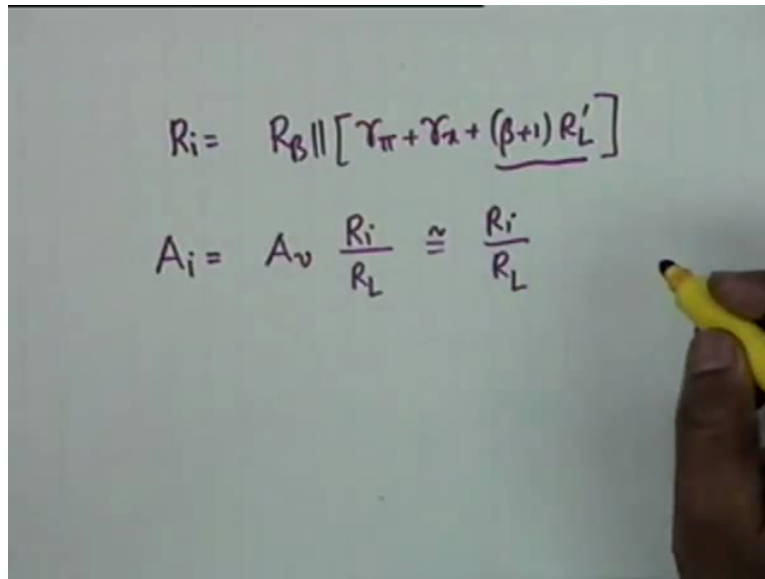 Ri = RB || [ rπ + rx + (β+1) RL' ]
Ai = Av Ri/RL ≅ Ri/RL